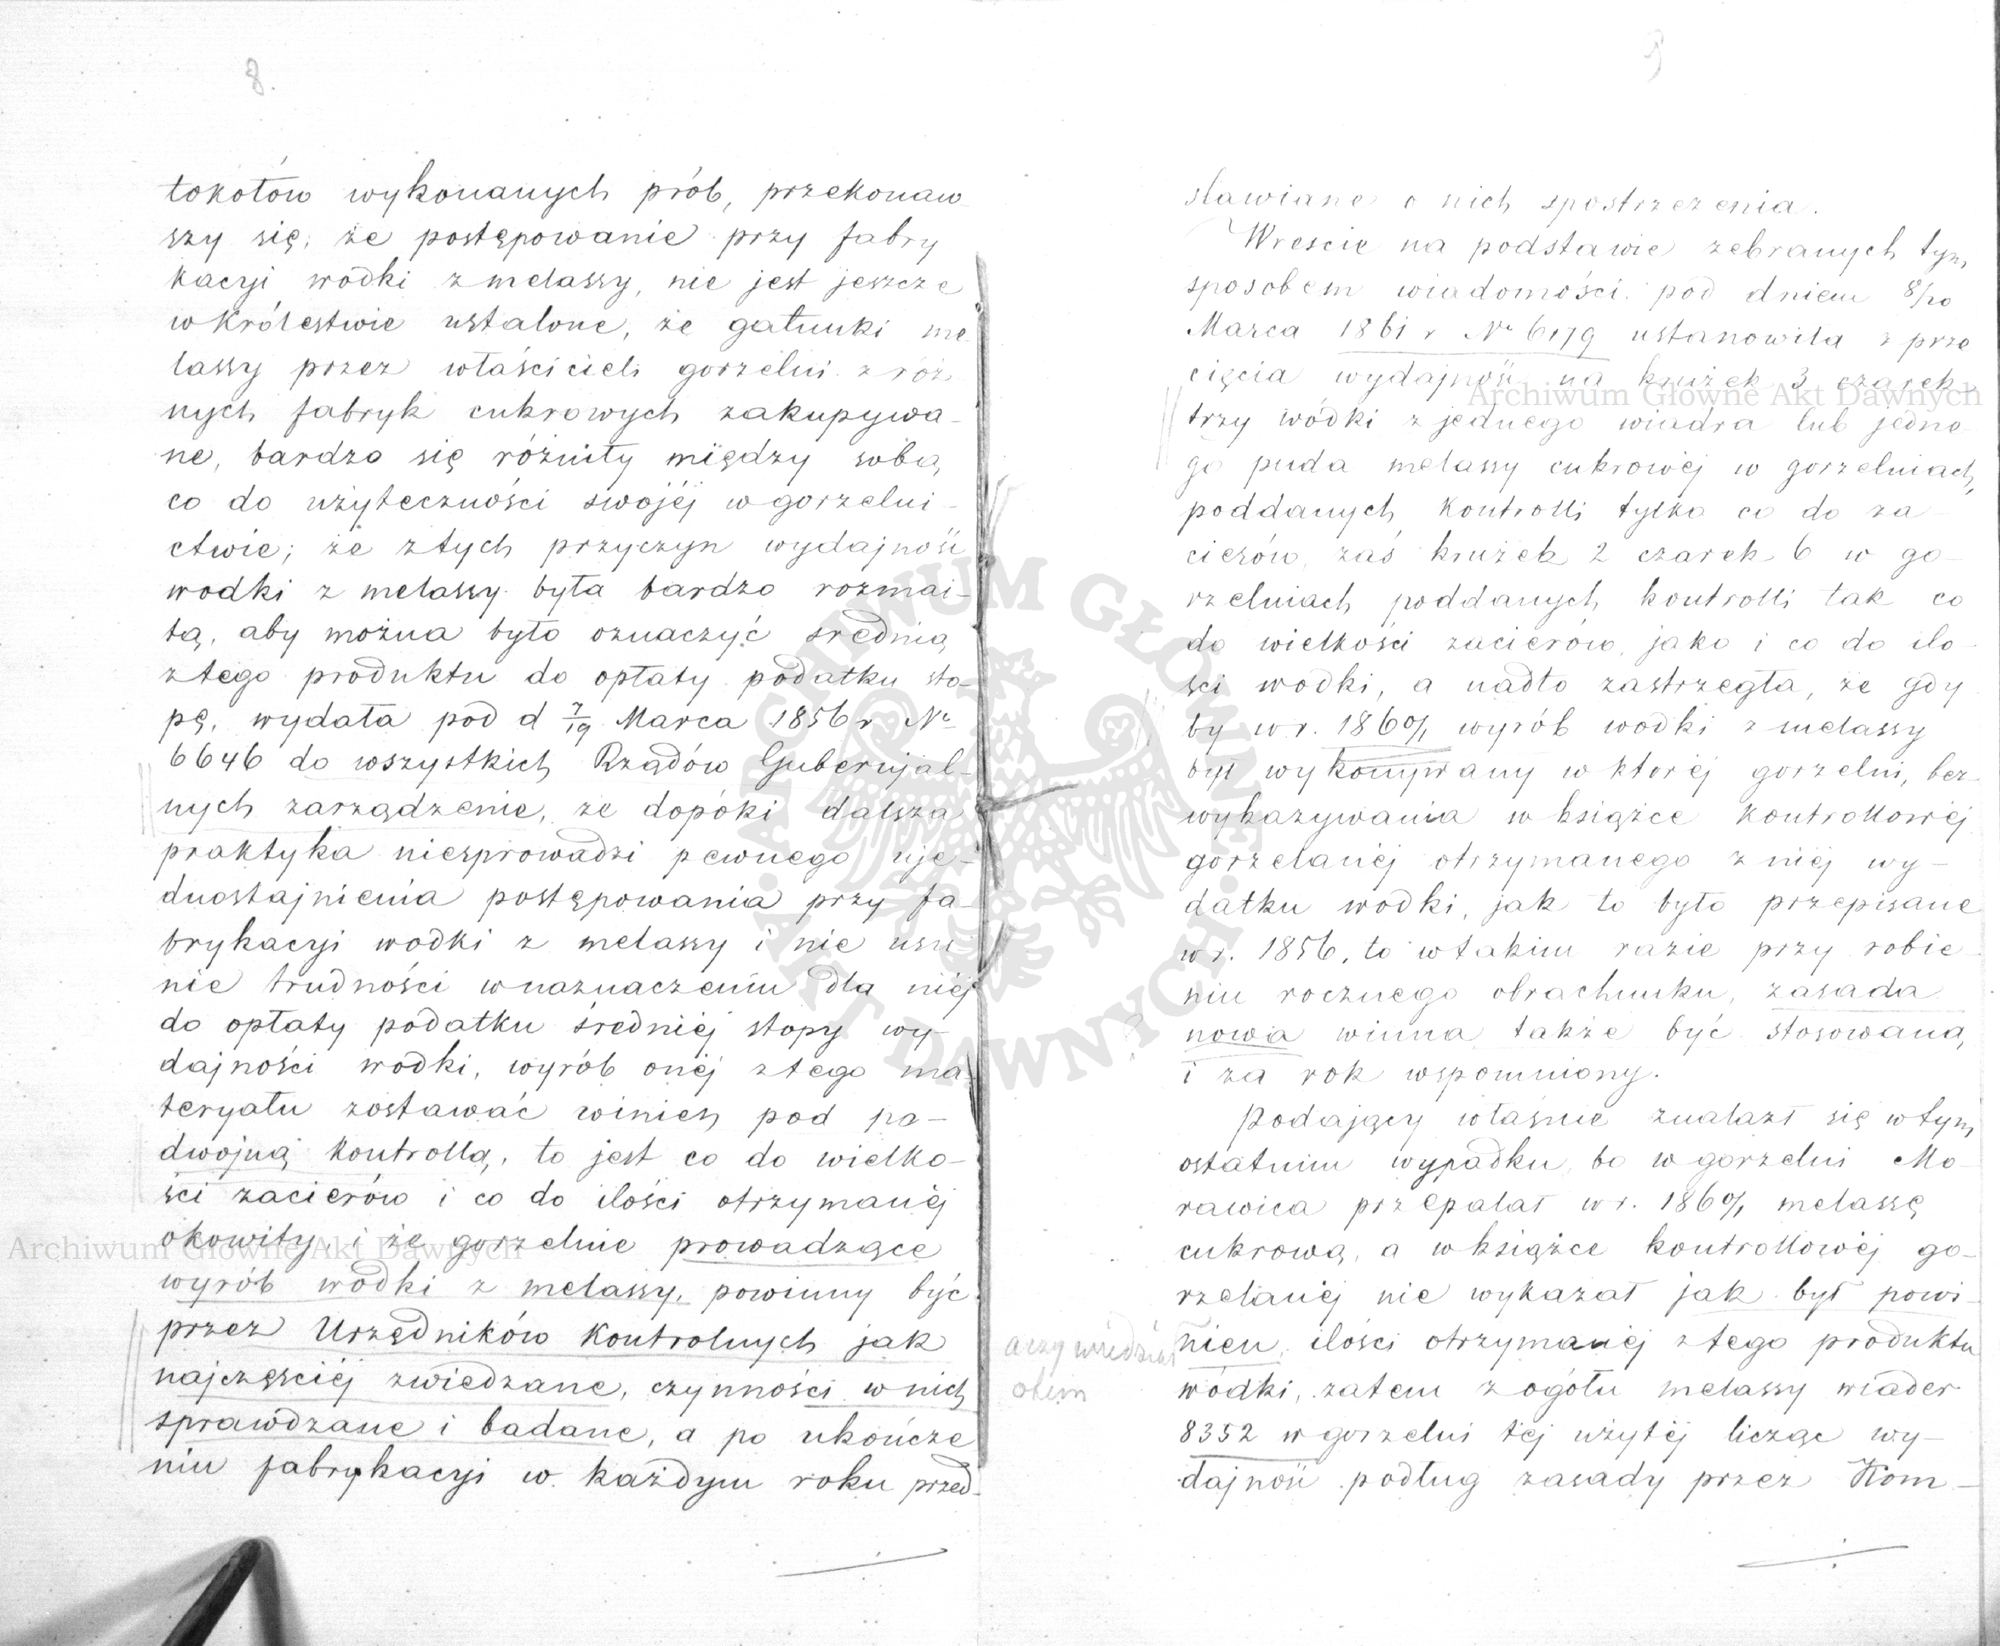 8.
tokołów wykonanych prób, przekonaw
szy się, że postępowanie przy fabry
kacyi wódki z melassy, nie jest jeszcze
w Królestwie ustalone, że gatunki me
lassy przez właścicieli gorzelni z róż
nych fabryk cukrowych zakupywa-
ne, bardzo się różniły między sobą
co do użyteczności swojéj w gorzelni-
ctwie; że z tych przyczyn wydajność
wodki z melassy była bardzo rozmai-
tą, aby można było oznaczyć srednią
z tego produktu do opłaty podatku sto-
pę, wydała pod d 7/19 Marca 1856 r Nr
6646 do wszystkich Rządów Gubernjal-
nych zarządzenie, że dopóki dalsza
praktyka niesprowadzi pewnego uje-
dnostajnienia postępowania przy fa-
brykacyi wodki z melassy i nie usu
nie trudności w naznaczeniu dla niéj
do opłaty podatku średniéj stopy wy-
dajności wodki, wyrób onéj z tego ma-
teryału zostawać winien pod po-
dwojną kontrollą, to jest co do wielko-
ści zacierów i co do ilości otrzymanéj
okowity, i że gorzelnie prowadzące
wyrób wodki z melassy, powinny być
przez Urzędników kontrolnych jak
najczęściéj zwiedzane, czynności w nich
sprawdzane i badane, a po ukończe
niu fabrykacyi w każdym roku przed-
9
stawiane o nich spostrzeżenia.
Wreście na podstawie zebranych tym
sposobem wiadomości pod dniem 8/20
Marca 1861 r Nr 6179 ustanowiła z prze
cięcia wydajność na krużek 3 czarek
trzy wódki z jednego wiadra lub jedne
go puda melassy cukrowéj w gorzelniach,
poddanych kontrolli tylko co do za-
cierów, zaś krużek 2 czarek 6 w go-
rzelniach poddanych kontrolli tak co
do wielkości zacierów, jako i co do ilo-
ści wodki, a nadto zastrzegła, że gdy
by w r. 1860/1 wyrób wodki z melassy
był wykonywany w ktoréj gorzelni, bez
wykazywania w książce kontrollowéj
gorzelanéj otrzymanego z niéj wy-
datku wodki, jak to było przepisane
w r. 1856, to w takim razie przy robie-
niu rocznego obrachunku, zasada
nowa winna także być stosowaną
i za rok wspomniony.
Podający właśnie znalazł się w tym
ostatnim wypadku, bo w gorzelni Mo-
rawica przepalał w r. 1860/1 melassę
cukrową, a w książce kontrollowéj go-
rzelanéj nie wykazał jak był powi-
nien, ilości otrzymanéj z tego produktu
wódki, zatem z ogółu melassy wiader
8352 w gorzelni téj użytéj licząc wy-
dajność podług zasady przez Kom-
a czy wiedział
o tem
Archiwum Główne Akt Dawnych
Archiwum Główne Akt Dawnych
ARCHIWUM GŁÓWNE
AKT DAWNYCH